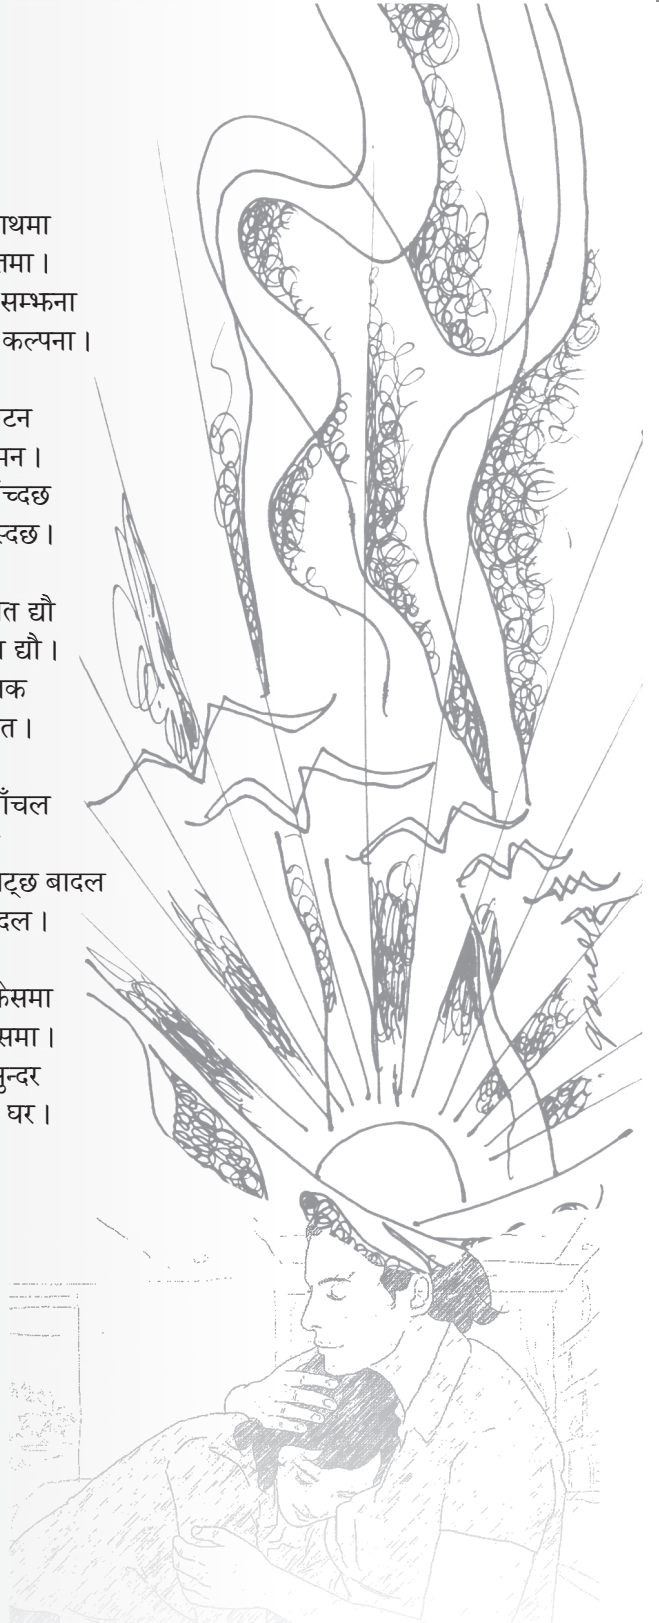 ाथमा
तमा ।
सम्झना
कल्पना ।
टन
मन ।
च्दछ
स्दछ ।
त द्यौ
द्यौ ।
क
त ।
ाँचल
ट्छ बादल
दल ।
केसमा
समा ।
सुन्दर
घर ।